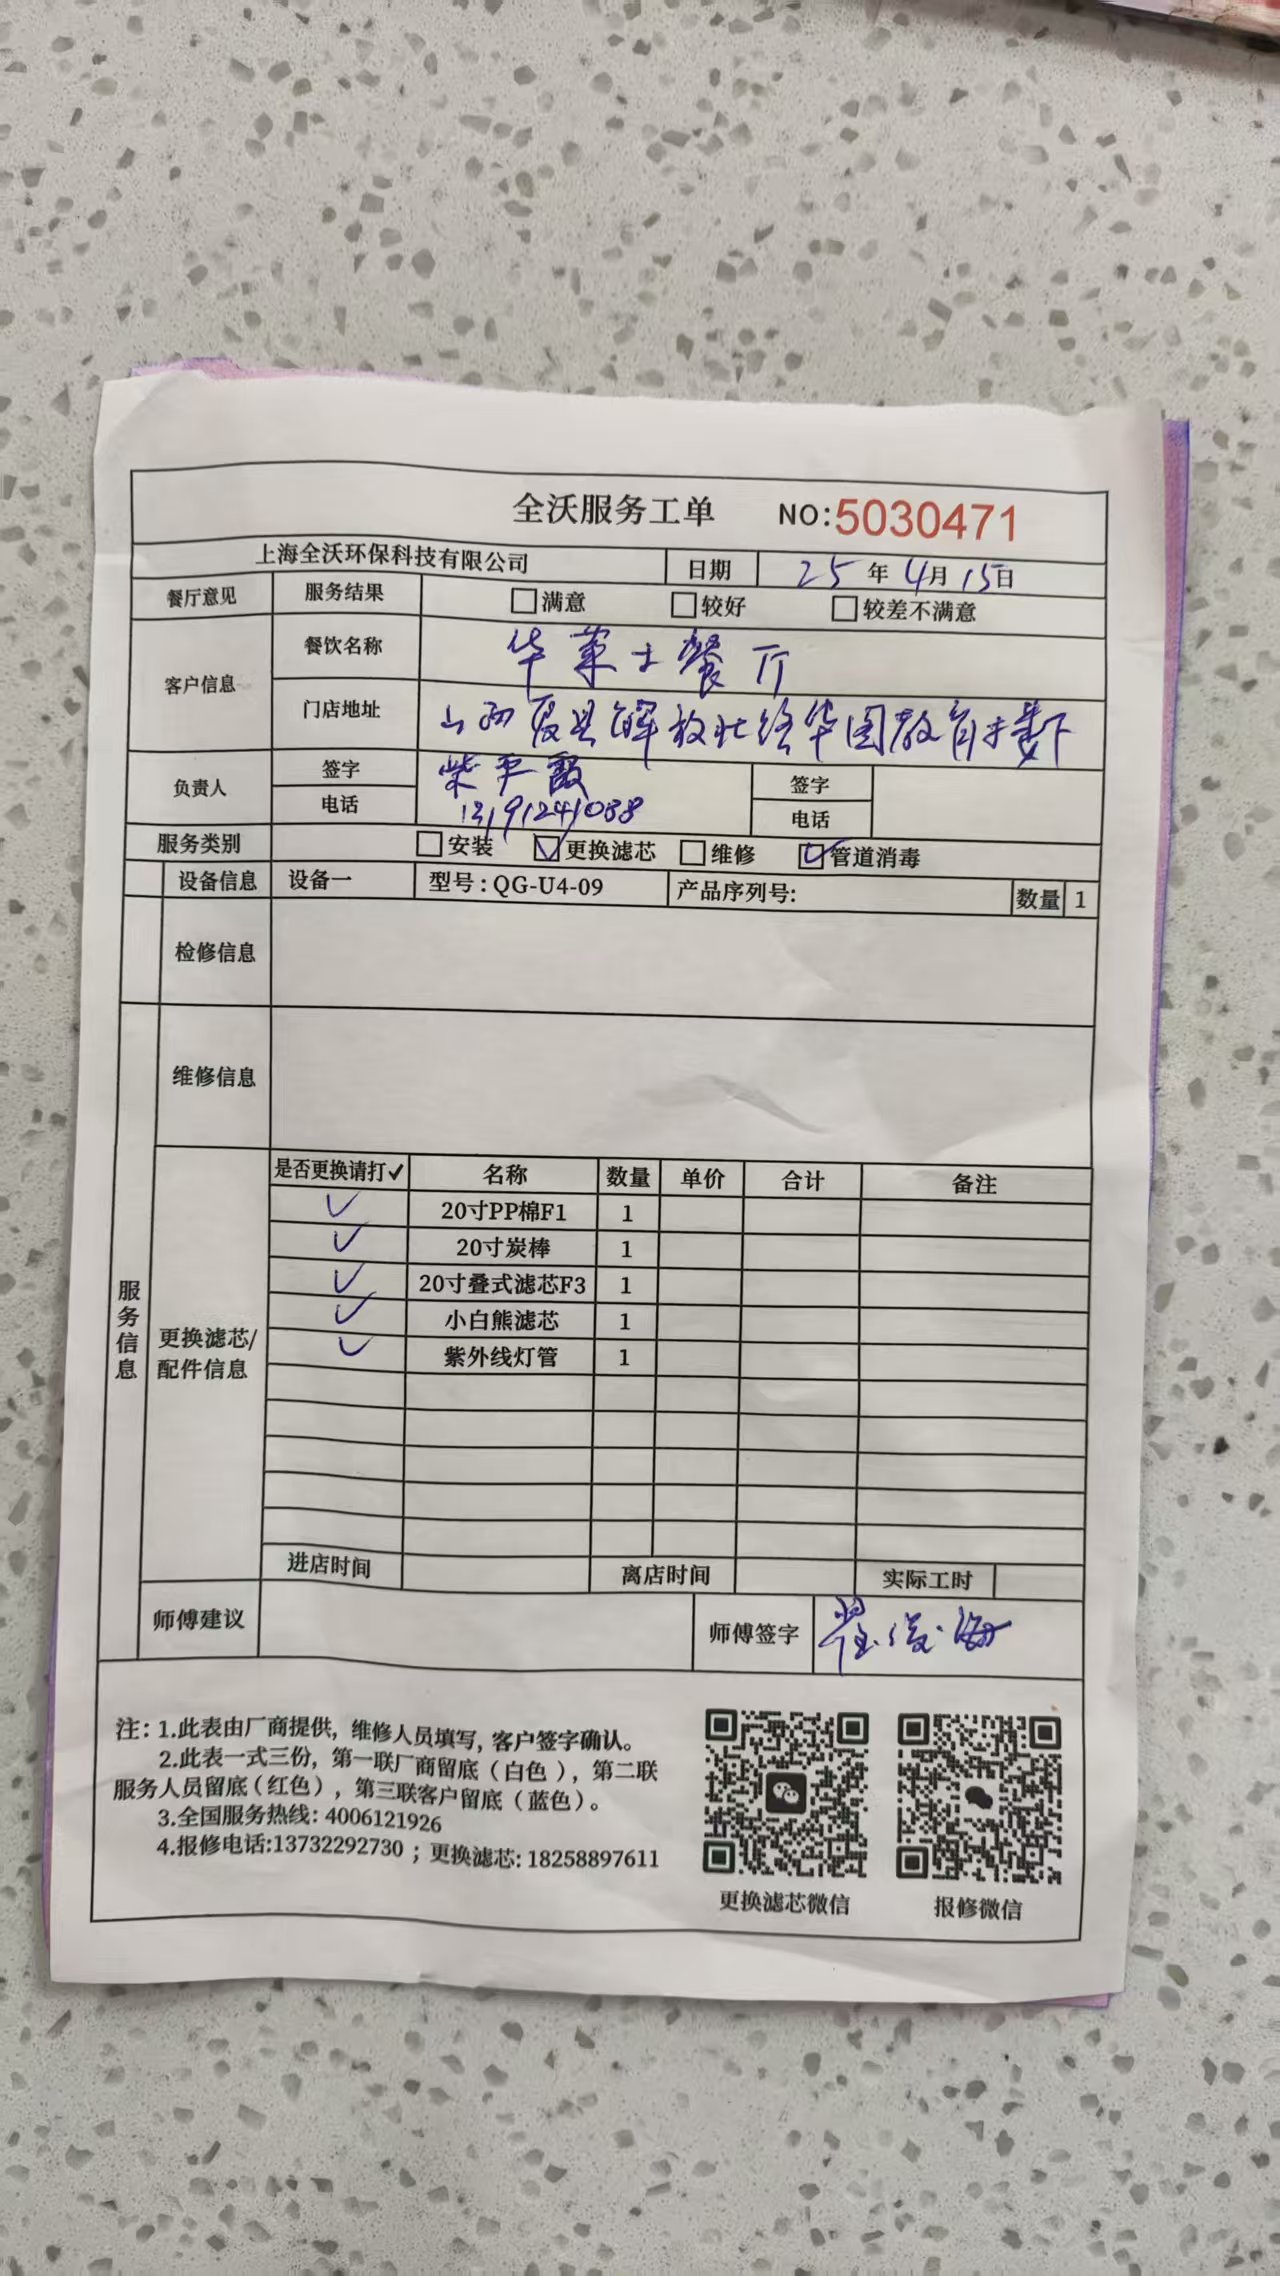 全沃服务工单 NO:5030471
上海全沃环保科技有限公司 日期 25年4月15日
餐厅意见 服务结果 □满意 □较好 □较差不满意
客户信息 餐饮名称 华莱士餐厅
门店地址 山西夏县解放北路华图教育楼下
负责人 签字 柴平 签字
电话 13191241088 电话
服务类别 □安装 ☑更换滤芯 □维修 ☑管道消毒
设备信息 设备一 型号:QG-U4-09 产品序列号: 数量 1
检修信息
维修信息
服务信息
更换滤芯/配件信息
是否更换请打✓ 名称 数量 单价 合计 备注
✓ 20寸PP棉F1 1
✓ 20寸炭棒 1
✓ 20寸叠式滤芯F3 1
✓ 小白熊滤芯 1
✓ 紫外线灯管 1
进店时间 离店时间 实际工时
师傅建议 师傅签字 翟俊海
注:1.此表由厂商提供,维修人员填写,客户签字确认。
2.此表一式三份,第一联厂商留底(白色),第二联
服务人员留底(红色),第三联客户留底(蓝色)。
3.全国服务热线:4006121926
4.报修电话:13732292730;更换滤芯:18258897611
更换滤芯微信 报修微信